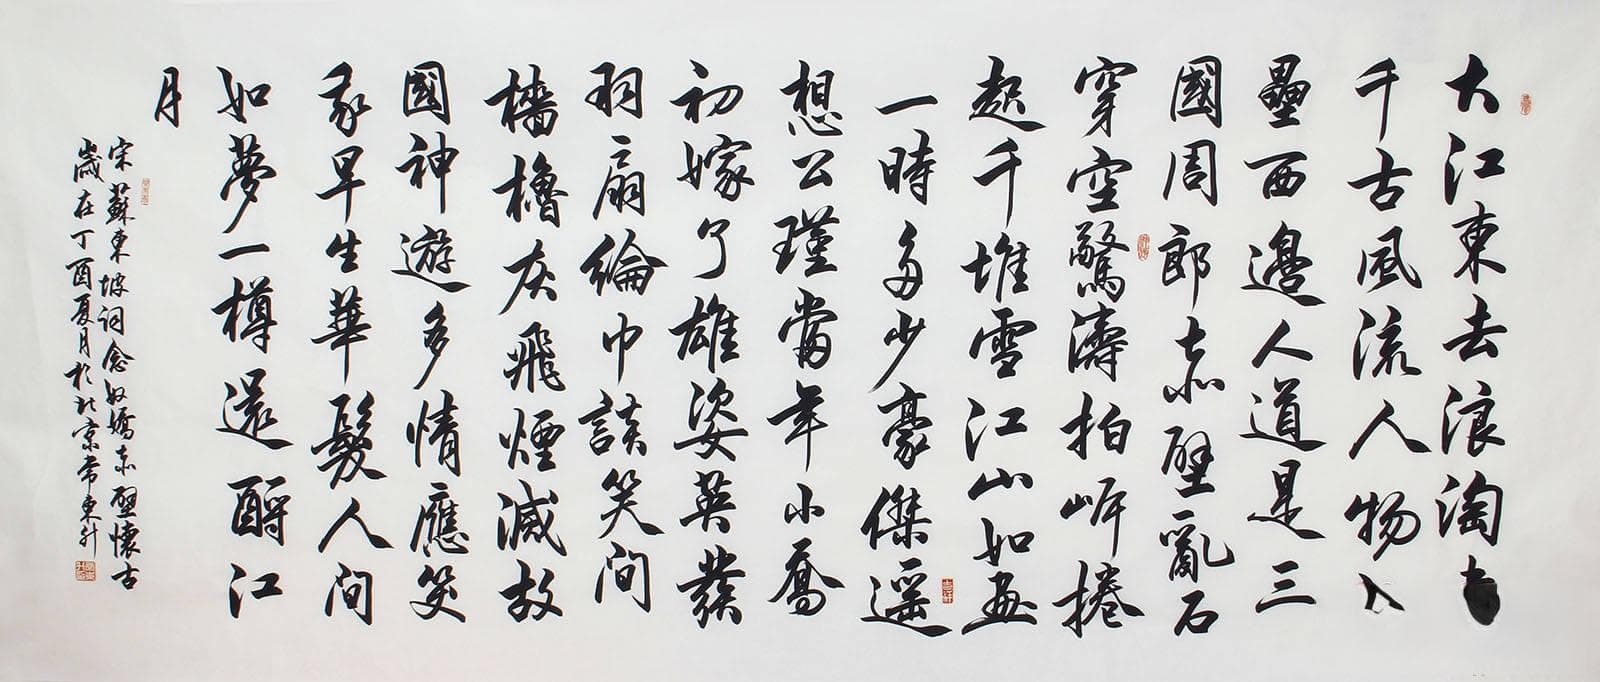 大江東去浪淘
千古風流人物
壘西邊人道是三
國周郎赤壁亂石
穿空驚濤拍岸捲
起千堆雪江山如畫
一時多少豪傑遥
想公瑾當年小喬
初嫁了雄姿英發
羽扇綸巾談笑間
檣櫓灰飛煙滅故
國神遊多情應笑
我早生華髮人間
如夢一樽還酹江
月
宋蘇東坡詞念奴嬌赤壁懷古
歲在丁酉夏月於北京常東升